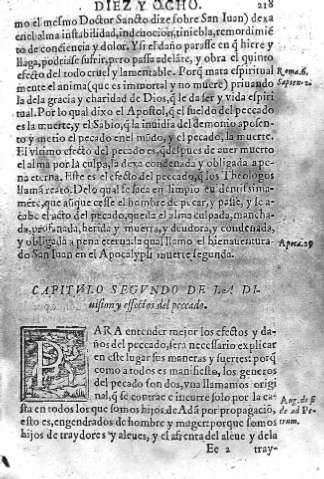 DIEZ Y OCHO. 218
mo el mesmo Doctor Sancto dize sobre San Iuan) dexa
en el alma instabilidad, indeuocion, tiniebla, remordimiē
to de conciencia y dolor. Y si el daño parasse en q̃ hiere y
llaga, podriase sufrir, pero passa adelāte, y obra el quinto
efecto del todo cruel y lamentable. Porq̃ mata espiritual Roma. 6.
mente el anima (que es immortal y no muere) priuando Sapien. 2.
la dela gracia y charidad de Dios, q̃ le da ser y vida espiri
tual. Por lo qual dixo el Apostol, q̃ el sueldo del peccado
es la muerte, y el Sabio, q̃ la inuidia del demonio aposen-
to y metio el peccado en el mūdo, y el pecado, la muerte.
El vltimo efecto del pecado es, q̃ despues de auer muerto
el alma por la culpa, la dexa condenada y obligada a pe-
na eterna. Este es el efecto del peccado, q̃ los Theologos
llamā reato. De lo qual se saca en limpio euidentissima-
mēte, que aūque cesse el hombre de pecar, y passe, y se a-
cabe el acto del pecado, queda el alma culpada, mancha-
da, profanada, herida y muerta, y deudora, y condenada,
y obligada a pena eterna: la qual llamo el bienauentura-
do San Iuan en el Apocalypsi muerte segunda.
CAPITVLO SEGVNDO DE LA DI-
uision y effectos del peccado.
PARA entender mejor los efectos y da-
ños del peccado, sera necessario explicar
en este lugar sus maneras y suertes: porq̃
como a todos es manifiesto, los generos
del pecado son dos, vna llamamos origi
nal, q̃ se contrae e incurre solo por la ca Aug. de fi
sta en todos los que somos hijos de Adā por propagaciō, de ad Pe
esto es, engendrados de hombre y muger: porque somos trum.
hijos de traydores y aleues, y el afrenta del aleue y dela
Ee 2 tray-